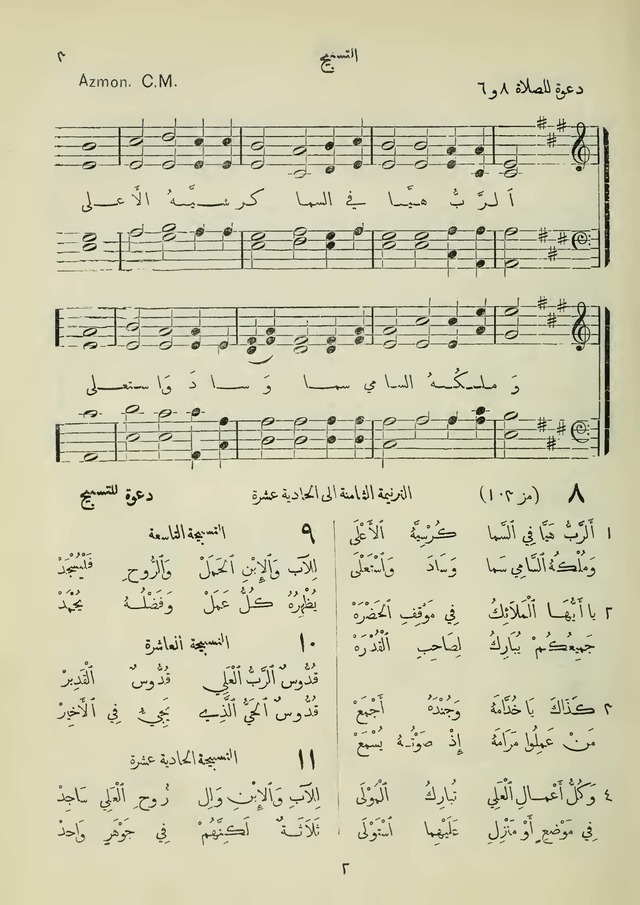 التسبيح ٢
دعوة للصلاة ٨ و ٦ Azmon. C.M.
اَلرَّبُّ هَيَّا في السما كرسيَّهُ الأَعلى
وَملكُهُ السامي سما وَسادَ وَاستعلى
٨ (مز ١٠٣) الترنيمة الثامنة الى الحادية عشرة دعوة للتسبيح
١ اَلرَّبُّ هَيَّا فِي ٱلسَّما كُرْسِيَّهُ ٱلْأَعْلَى
وَمُلْكُهُ ٱلسَّامِي سَمَا وَسَادَ وَٱسْتَعْلَى
٢ يا أَيُّهَا ٱلْمَلَائِكُ فِي مَوْقِفِ ٱلْحَضْرَهْ
جَمِيعُكُمْ يُبَارِكُ لِصَاحِبِ ٱلْقُدْرَهْ
٣ كَذَاكَ يَا خُدَّامَهُ وَجُنْدَهُ أَجْمَعْ
مَنْ عَمِلُوا مَرَامَهُ إِذْ صَوْتُهُ يُسْمَعْ
٤ وَكُلُّ أَعْمَالِ ٱلْعَلِي تُبَارِكُ ٱلْمَوْلَى
فِي مَوْضِعٍ أَوْ مَنْزِلِ عَلَيْهِمَا ٱسْتَوْلَى
٩ التسبيحة التاسعة
لِلآبِ وَٱلْإِبْنِ ٱلْحَمَلْ وَٱلرُّوحِ فَلْيُسْجَدْ
يُظْهِرُهُ كُلُّ عَمَلْ وَفَضْلُهُ يُحْمَدْ
١٠ التسبيحة العاشرة
قُدُّوسٌ ٱلرَّبُّ ٱلْعَلِي قُدُّوسٌ ٱلْقَدِيرْ
قُدُّوسٌ ٱلْحَيُّ ٱلَّذِي يَجِيءُ فِي ٱلْأَخِيرْ
١١ التسبيحة الحادية عشرة
لِلآبِ وَٱلْإِبْنِ وَٱل رُّوحِ ٱلْعَلِي سَاجِدْ
ثَلَاثَةٌ لَكِنَّهُمْ فِي جَوْهَرٍ وَاحِدْ
٢